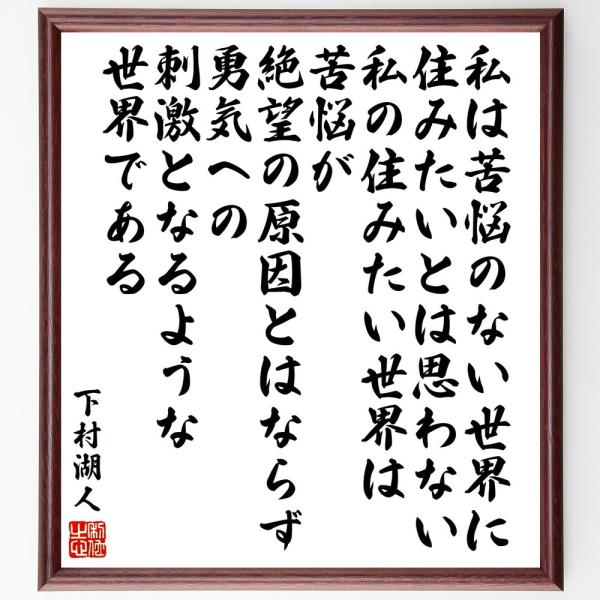 私は苦悩のない世界に
住みたいとは思わない
私の住みたい世界は
苦悩が
絶望の原因とはならず
勇気への
刺激となるような
世界である
下村湖人